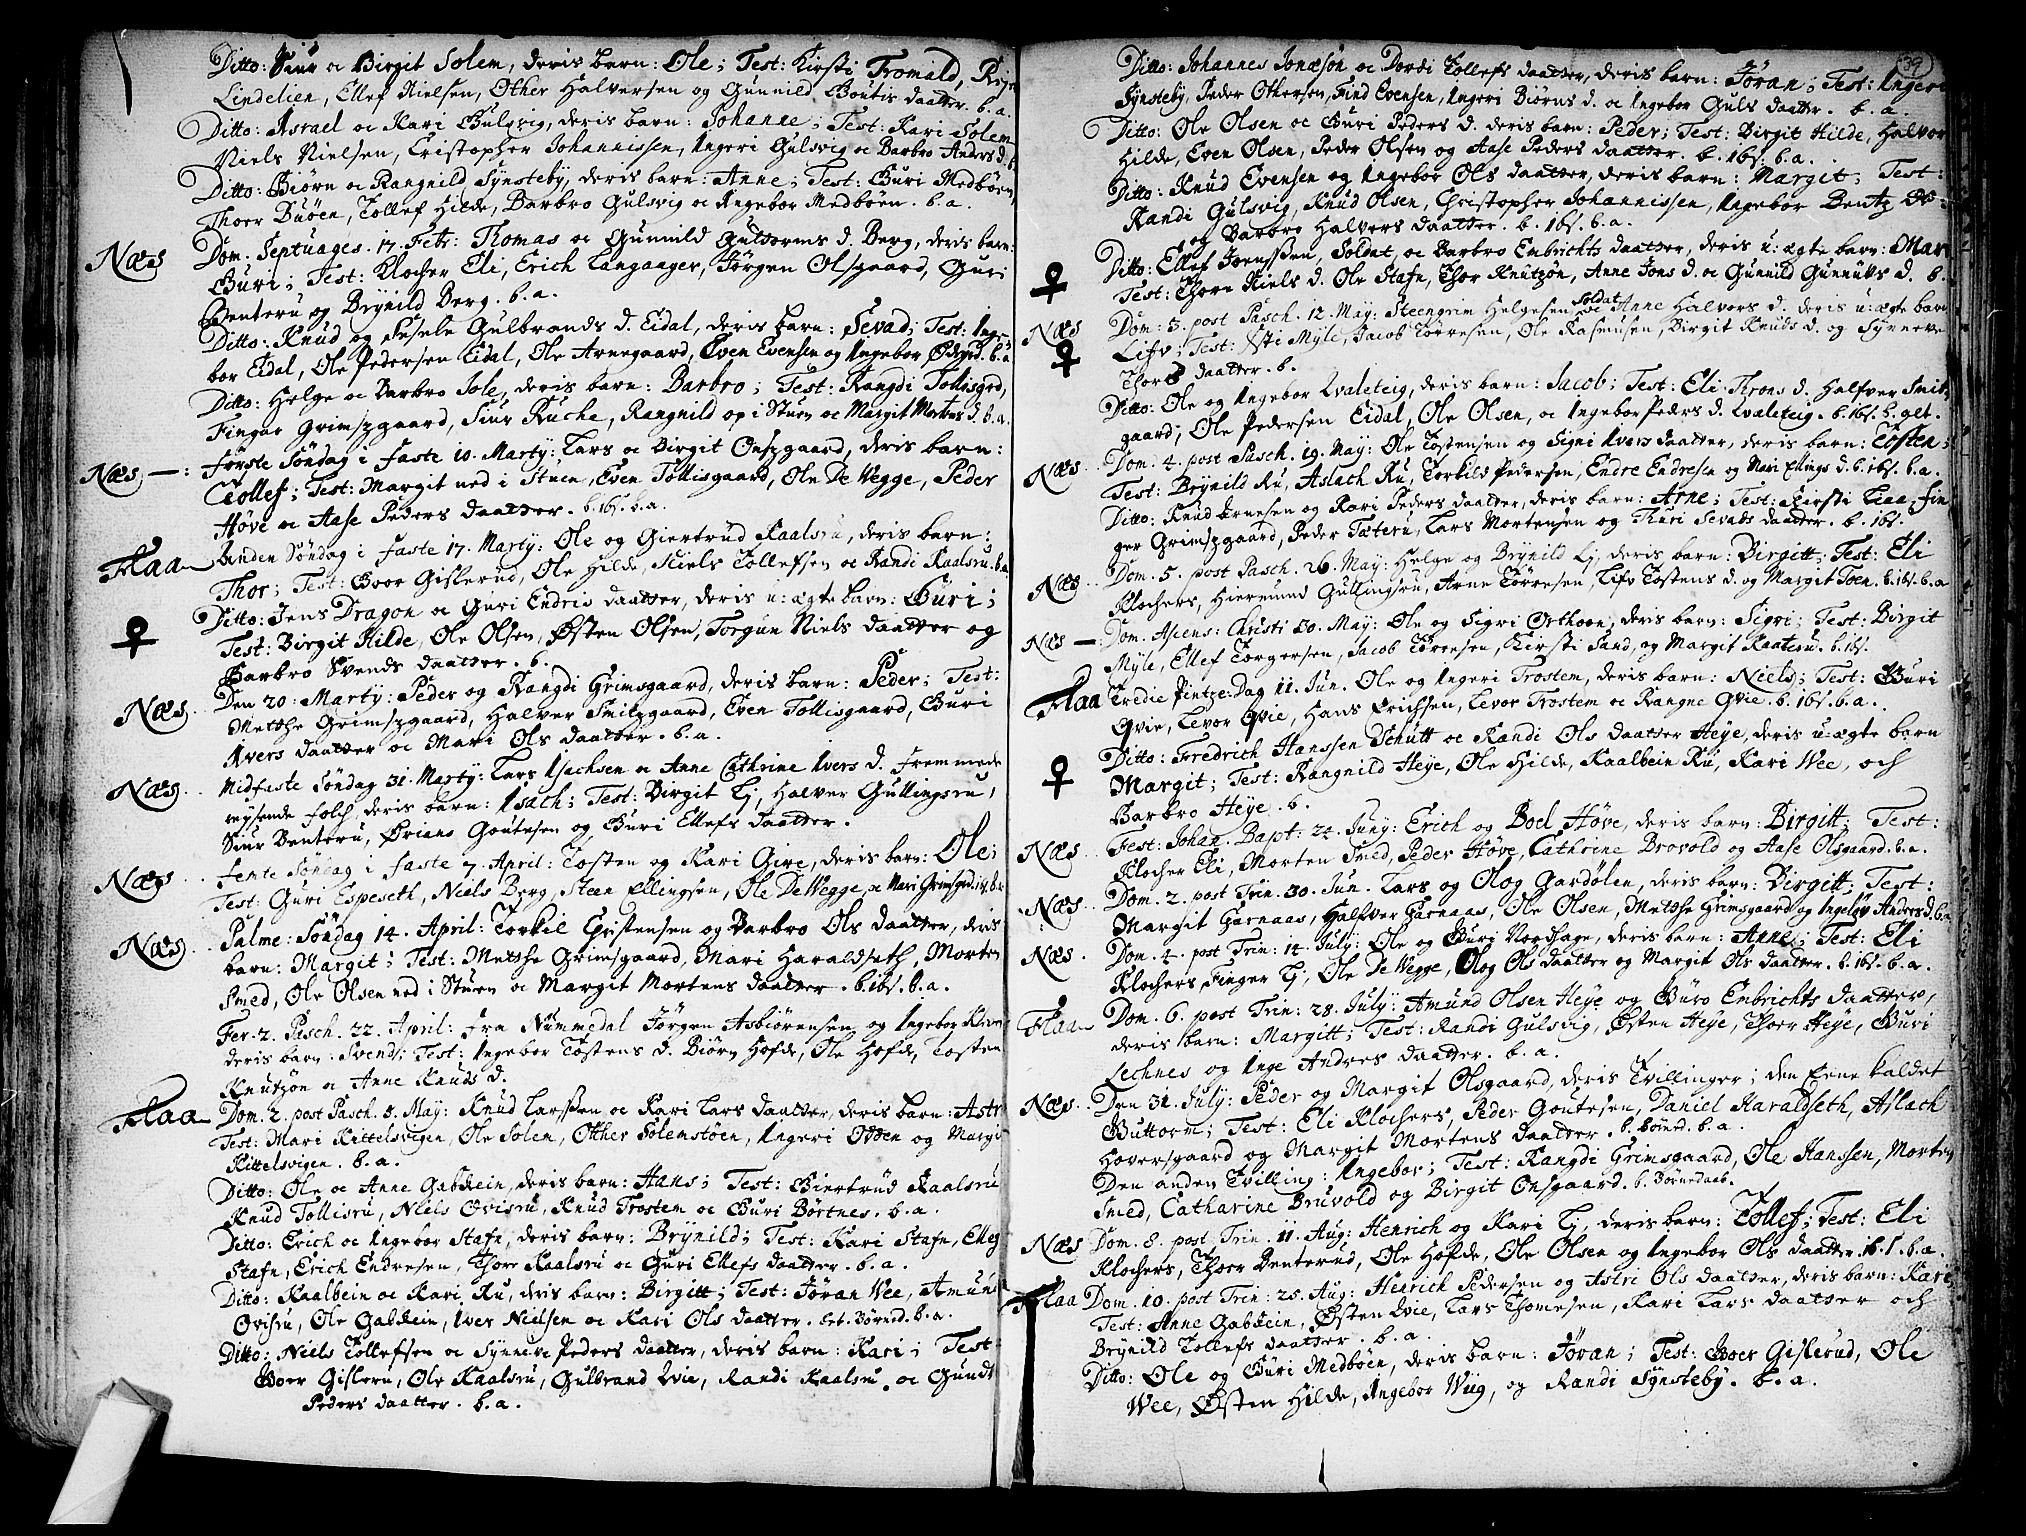 Ditto: Siur oc Birgit Solem, deris barn: Ole; Test: Kirsti Tromald,
Lindelien, Ellef Nielsen, Other Halversen og Gunnild Boutis daatter. b. a.
Ditto: Asrael oc Kari Gulsvig, deris barn: Johanne; Test: Kari Solem
Niels Nielsen, Cristopher Johannissen, Ingeri Gulsvig oc Barbro Anders d. b.
Ditto: Biørn oc Rangnild Synsteby, deris barn: Anne; Test: Guri Medbøen,
Thoer Buøen, Tollef Hilde, Barbro Gulsvig oc Ingebor Medbøen. b. a.
Næs Dom. Septuages. 17. Febr: Thomas oc Gunnild Guttorms d. Berg, deris barn:
Guri; Test: Klocher Eli, Erich Langaager, Jørgen Olsgaard, Guri
Benteru og Brynild Berg. b. a.
Ditto: Knud og Sesele Gulbrands d. Eidal, deris barn: Sevad; Test: Inge-
bor Eidal, Ole Pedersen Eidal, Ole Arnegaard, Even Evensen og Ingebor Ødegrd. b. a
Ditto: Helge oc Barbro Sole, deris barn: Barbro; Test: Rangdi Tollisgrd,
Fingar Grimszgaard, Siur Ruche, Rangnild op i Stuen oc Margit Mortens d. b. a.
Næs —: Første Søndag i Faste 10. Marty: Lars oc Birgit Onszgaard, deris barn:
Tollef; Test: Margit ned i Stuen, Even Tollisgaard, Ole De Wegge, Peder
Høve oc Aase Peders daatter. b. ibs. b. a.
Flaa Anden Søndag i Faste 17. Marty: Ole og Giertrud Kaalsru, deris barn:
Thor; Test: Boer Gislerud, Ole Hilde, Niels Tollefsen oc Randi Kaalsru. b. a
♀ Ditto: Jens Dragon oc Guri Endris daatter, deris u: ægte barn: Guri;
Test: Birgit Hilde, Ole Olsen, Østen Olsen, Torgun Niels daatter og
Barbro Svends daatter. b.
Næs Den 20. Marty: Peder og Rangdi Grimsgaard, deris barn: Peder; Test:
Metthe Grimszgaard, Halver Smitzgaard, Even Tollisgaard, Guri
Ivers daatter oc Mari Ols daatter. b. a.
Næs Midfaste Søndag 31. Marty: Lars Isachsen oc Anne Cathrine Ivers d. fremmede
reysende folch, deris barn: Isach; Test: Birgit Lj, Halver Gullingsru,
Siur Benteru, Ørians Goutesen og Guri Ellefs daatter.
Næs Femte Søndag i Faste 7. April: Tosten og Kari Give, deris barn: Ole;
Test: Guri Espeseth, Niels Berg, Steen Ellingsen, Ole De Wegge, oc Mari Grimsgrd.
Næs Palme: Søndag 14. April: Torkil Cristensen og Barbro Ols daatter, deris
barn: Margit; Test: Metthe Grimsgaard, Mari Haraldseth, Morten
Smed, Ole Olsen ned i Stuen oc Margit Mortens daatter. b. ibs. b. a.
Fer. 2. Pasch. 22. April: fra Nummedal Jørgen Asbiørensen og Ingebor
deris barn: Svend; Test: Ingebor Tostens d. Biørn Hofde, Ole Hofde, Tosten
Knutzøn oc Anne Knuds d.
Flaa Dom. 2. post Pasch. 8. May: Knud Larssen oc Kari Lars daatter, deris barn: Astr
Test: Mari Kittelsvigen, Ole Solem, Other Solemstøen, Ingeri Odden og Margit
Kittelsvigen. b. a.
Ditto: Ole oc Anne Gabkein, deris barn: Hans; Test: Giertrud Kaalsru
Knud Tollisru, Niels Qvisru, Knud Trostem oc Guri Børtnes. b. a.
Ditto: Erich oc Ingebor Stafn, deris barn: Brynild; Test: Kari Stafn, Ellef
Stafn, Erich Endresen, Thoer Kaalsru oc Guri Ellefs daatter. b. a.
Ditto: Kaalbein oc Kari Ru, deris barn: Birgitt; Test: Jøran Wee, Amund
Qvisru, Ole Gabkein, Iver Nielsen oc Kari Ols daatter. b. a.
Ditto: Niels Tollefsen oc Synneve Peders daatter, deris barn: Kari; Test:
Boer Gisleru, Ole Kaalsru, Gulbrand Qvie, Randi Kaalsru, oc Gundi
Peders daatter. b. a.
39
Ditto: Johannes Jonæsøn oc Dordi Tollefs daatter, deris barn: Jøran; Test: Ingeri
Synsteby, Peder Othersen, Find Evensen, Ingeri Biørns d. oc Ingebor Guls daatter. b. a.
Ditto: Ole Olsen oc Guri Peders d. deris barn: Peder; Test: Birgit Hilde, Halvor
Hilde, Even Olsen, Peder Olsen og Aase Peders daatter. b. ibs. b. a.
Ditto: Knud Evensen og Ingebor Ols daatter, deris barn: Margit; Test:
Randi Gulsvig, Knud Olsen, Christopher Johannissen, Ingebor Bentz
og Barbro Halvers daatter. b. ibs. b. a.
♀ Ditto: Ellef Jørnssen, Soldat, oc Barbro Embrichts daatter, deris u: ægte barn: Mari
Test: Thore Niels d. Ole Stafn, Thor Knutzøn, Anne Jons d. oc Gunnild Gunnulfs d. b.
Næs ♀ Dom: 3. post Pasch. 12. May: Steengrim Helgesen Soldat oc Anne Halvors d. deris u: ægte barn
Lifv; Test: Myle, Jacob Torresen, Ole Rasmusen, Birgit Knuds d. og Synneve
Thors daatter. b.
Ditto: Ole og Ingebor Qvaleteig, deris barn: Jacob; Test: Eli Throns d. Halfver Smit-
gaard, Ole Pedersen Eidal, Ole Olsen, oc Ingebor Peders d. Qvaleteig.
Næs Dom. 4. post Pasch. 19. May: Ole Tostensen og Signi Ivers daatter, deris barn: Tosten;
Test: Brynild Ru, Aslach Ru, Torkild Pedersen, Endre Endresen og Mari Ellings d. b. ibs. b. a.
Ditto: Knud Arnesen og Kari Peders daatter, deris barn: Arne; Test: Kirsti Liaa, Fin
ger Grimszgaard, Peder Tæteru, Lars Mortensen og Thuri Sevads daatter. b. ibs.
Næs Dom. 5. post Pasch. 26. May: Helge og Brynild Lj, deris barn: Birgitt; Test: Eli
Klochers, Hiermund Gullingsru, Arne Torresen, Lifv Tostens d. og Margit Toen. b. ibs. b. a
Næs —: Dom. Ascens: Christi 30. May: Ole og Sigri Orthoen, deris barn: Sigri; Test: Birgit
Myle, Ellef Torgersen, Jacob Torresen, Kirsti Sand, og Margit Kaateru. b. ibs.
Flaa Tredie Pintze: Dag 11. Jun. Ole og Ingeri Trostem, deris barn: Niels; Test: Guri
Qvie, Levor Qvie, Hans Erichsen, Levor Trostem oc Rangne Qvie. b. ibs. b. a.
♀ Ditto: Fredrich Hanssen Schutt oc Randi Ols daatter Heye, deris u: ægte barn
Margit; Test: Rangnild Heye, Ole Hilde, Kaalbein Ru, Kari Wee, och
Barbro Heye. b.
Næs Fest: Johan. Bapt: 24. Juny: Erich og Boel Høve, deris barn: Birgitt; Test:
Klocher Eli, Morten Smed, Peder Høve, Cathrine Brovold og Aase Olsgaard. b. a.
Næs Dom. 2. post Trin. 30. Jun. Lars og Olog Gardølen, deris barn: Birgitt; Test:
Margit Garnaas, Halfver Garnaas, Ole Olsen, Metthe Grimsgaard og Ingeløv Anders d. b. a
Næs Dom. 4. post Trin: 14. July: Ole og Guri Nordhage, deris barn: Anne; Test: Eli
Klochers, Finger Lj, Ole De Wegge, Olog Ols daatter og Margit Ols daatter. b. ibs. b. a.
Flaa Dom. 6. post Trin: 28. July: Amund Olsen Heye og Guro Embrichts daatter,
deris barn: Margitt; Test: Randi Gulsvig, Østen Heye, Thoer Heye, Guri
Lechnes og Inge Andres daatter. b. a.
Næs Den 31. July: Peder og Margit Olsgaard, deris Tvillinger; den Eene kaldet
Guttorm; Test: Eli Klochers, Peder Goutesen, Daniel Haraldseth, Aslach
Hoversgaard og Margit Mortens daatter. b. a.
Den anden Tvilling: Ingebor; Test: Rangdi Grimsgaard, Ole Hanssen, Morten
Smed, Catharine Bruvold og Birgit Onsgaard. b. Børnedaab.
Næs Dom. 8. post Trin. 11. Aug: Henrich og Kari Lj, deris barn: Tollef; Test: Eli
Klochers, Thoer Benterud, Ole Hofde, Ole Olsen og Ingebor Ols daatter. b. a.
Flaa Dom. 10. post Trin: 25. Aug: Henrich Pedersen og Astri Ols daatter, deris barn: Kari,
Test: Anne Gabkein, Østen Qvie, Lars Thomesen, Kari Lars daatter och
Brynild Tollefs daatter. b. a.
Ditto: Ole og Guri Medbøen, deris barn: Jøran; Test: Boer Gislerud, Ole
Wee, Østen Hilde, Ingebor Wiig, og Randi Synsteby. b. a.